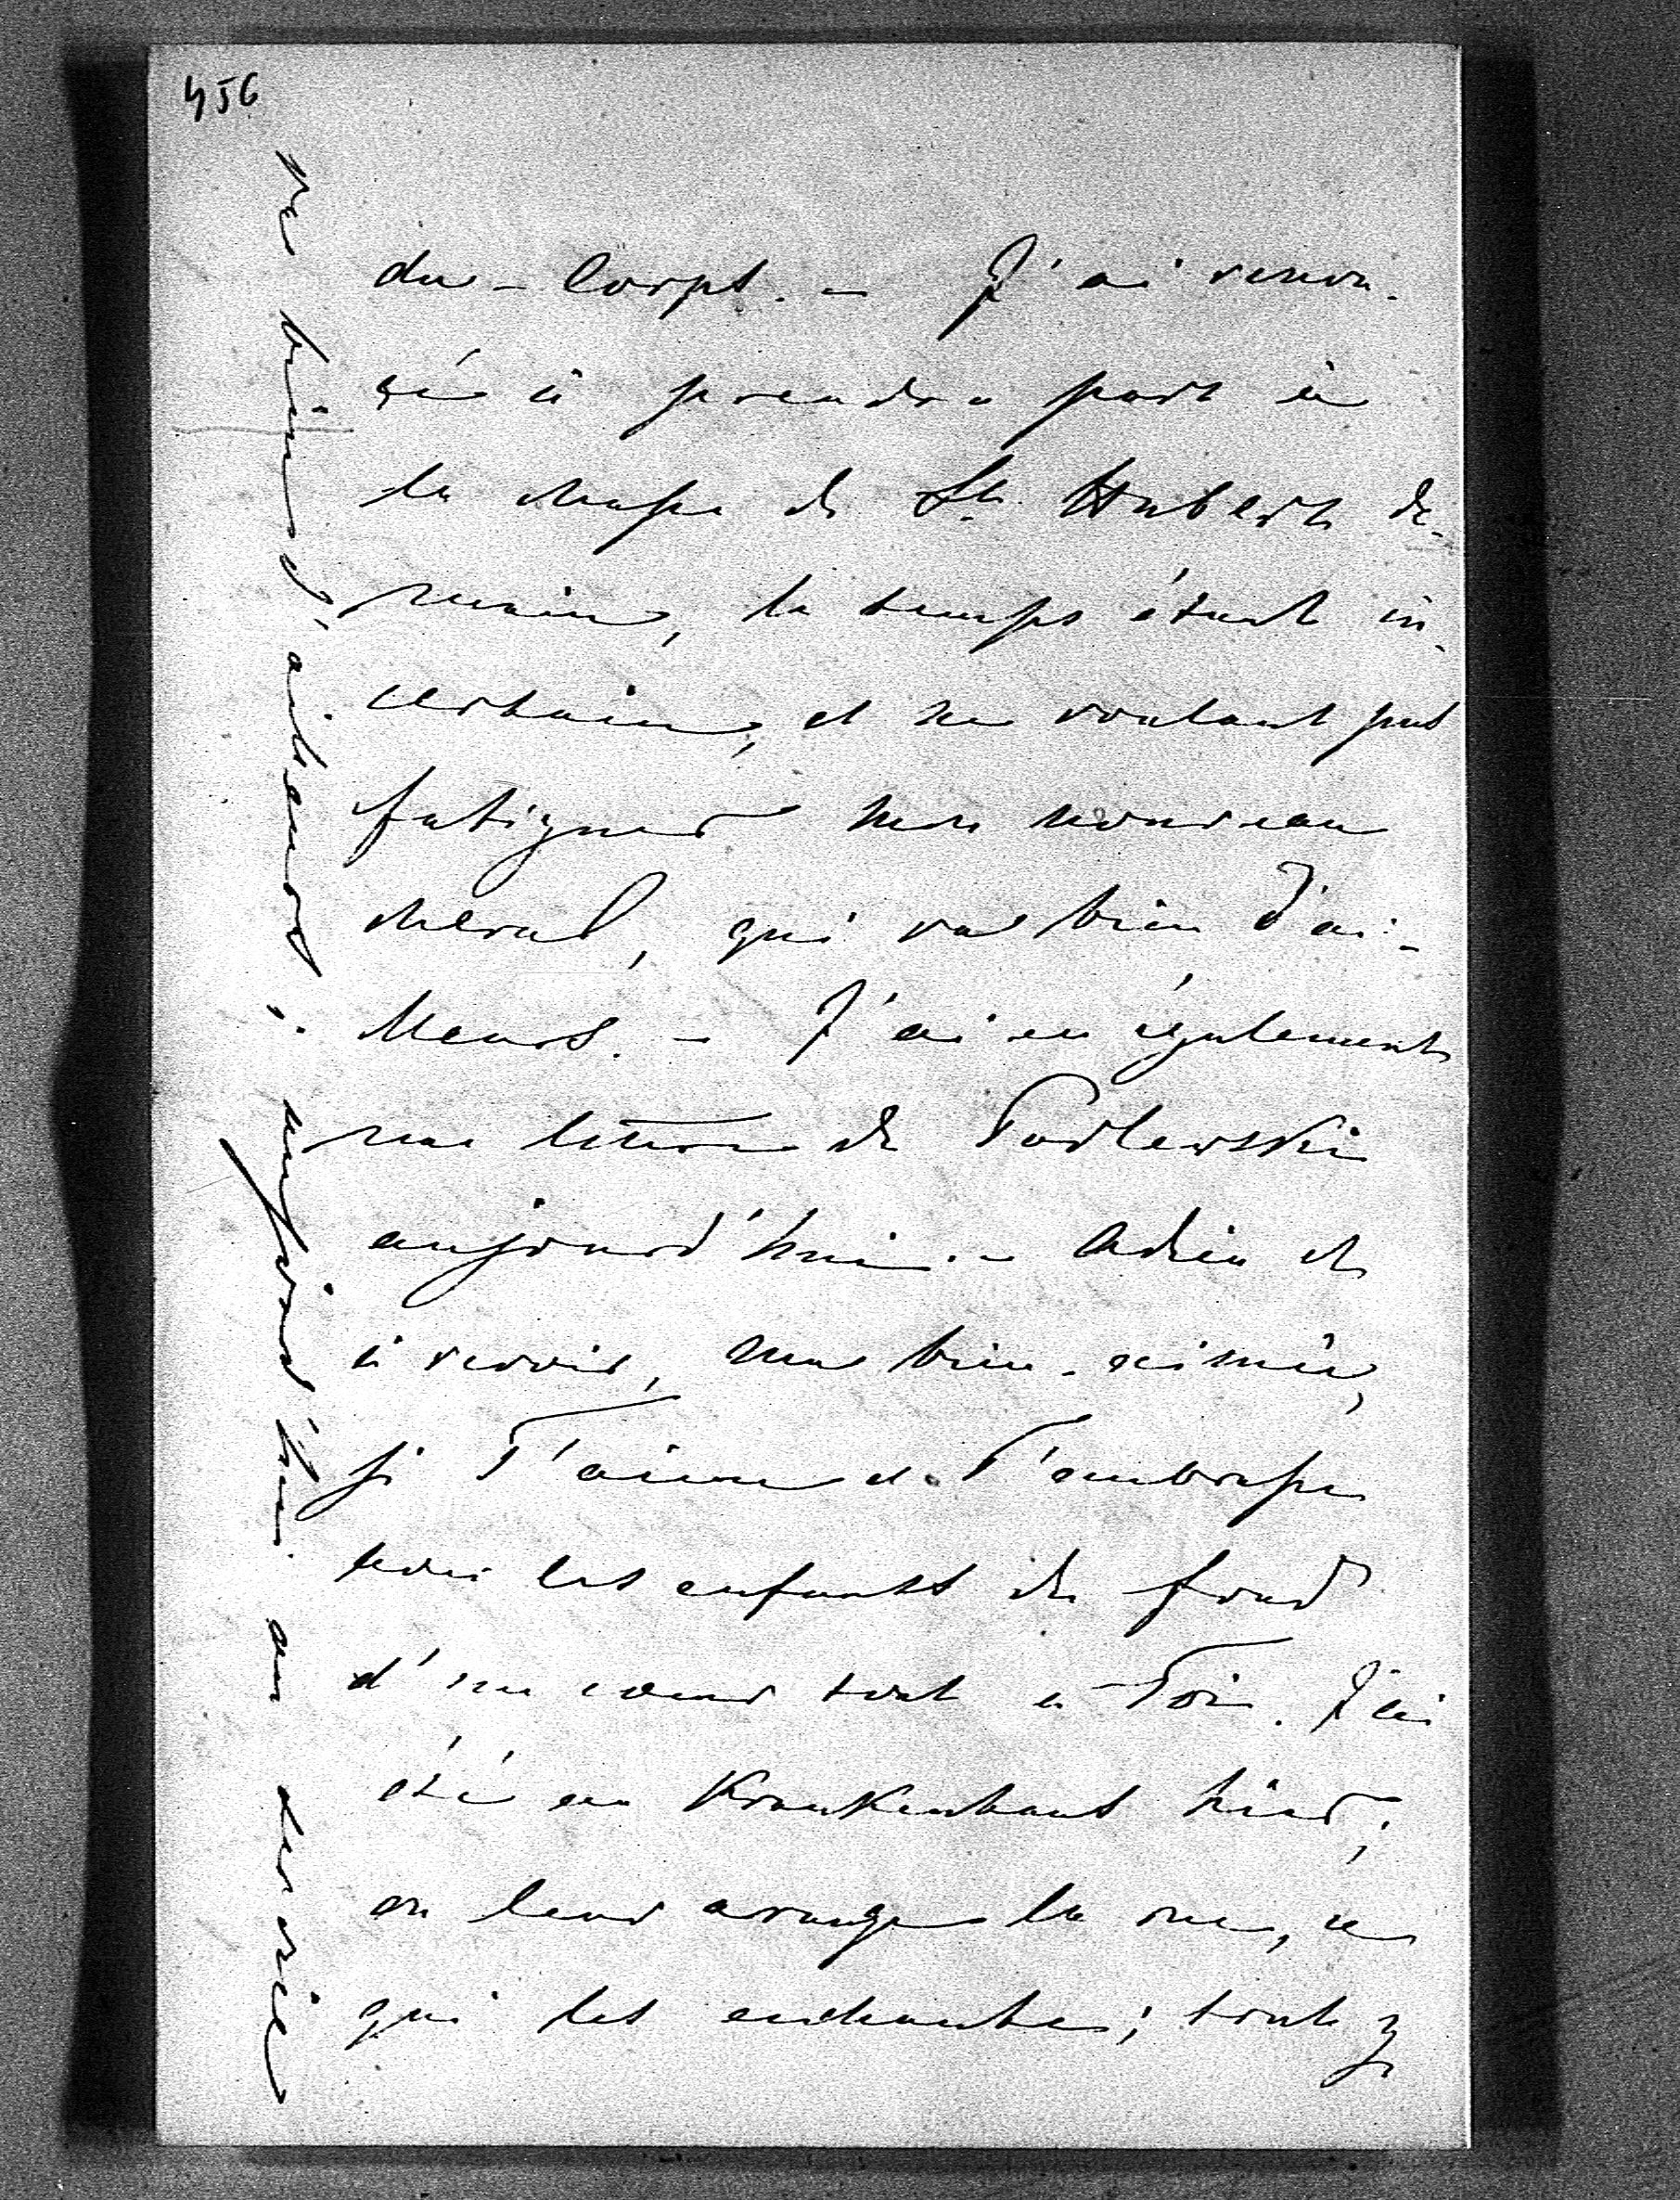 456
du-Corps. – J'ai renon-
cé à prendre part à
la chasse de St. Hubert de-
main, le temps étant in-
certain, et ne voulant pas
fatiguer mon nouveau
cheval, qui va bien d'ai-
lleurs. – J'ai eu également
une lettre de Podlewski
aujourd'hui. – Adieu et
à revoir, ma bien-aimée,
je T'aime et T'embrasse
les enfants du fond
d'un coeur tout à Toi. J'ai
été au Krankenhaus hier;
on leur arrange la rue, ce
qui les enchante; tout y
va bien d'ailleurs; aujourd'hui au